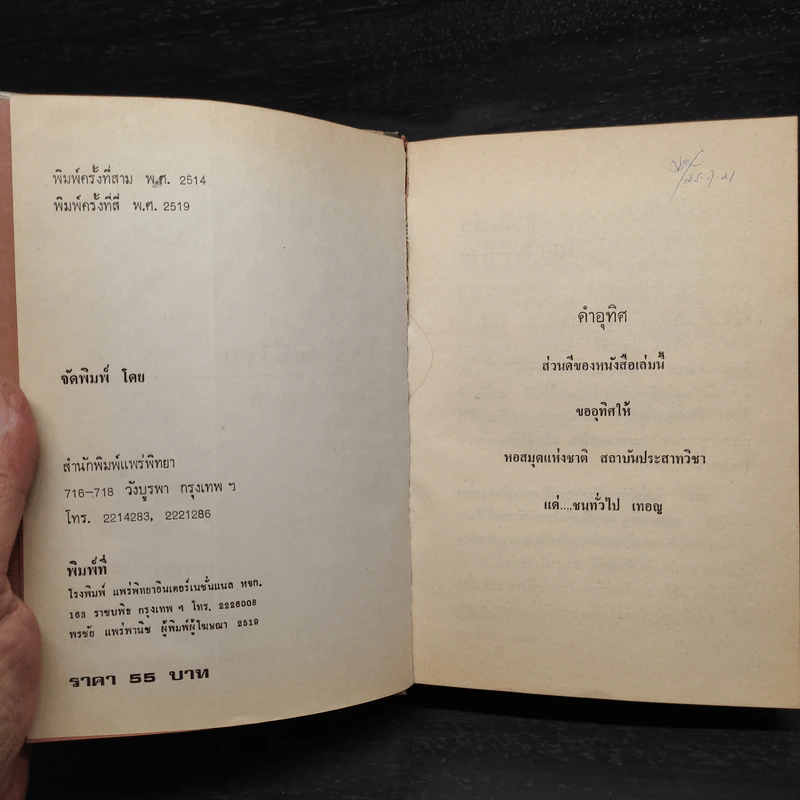 พิมพ์ครั้งที่สาม พ.ศ. 2514
พิมพ์ครั้งที่สี่ พ.ศ. 2519
จัดพิมพ์ โดย
สำนักพิมพ์แพร่พิทยา
716-718 วังบูรพา กรุงเทพ ฯ
โทร. 2214283, 2221286
พิมพ์ที่
โรงพิมพ์ แพร่พิทยาอินเตอร์เนชั่นแนล หจก.
163 ราชบพิธ กรุงเทพ ฯ โทร. 2226008
พรชัย แพร่พานิช ผู้พิมพ์ผู้โฆษณา 2519
ราคา 55 บาท
คำอุทิศ
ส่วนดีของหนังสือเล่มนี้
ขออุทิศให้
หอสมุดแห่งชาติ สถาบันประสาทวิชา
แด่....ชนทั่วไป เทอญ